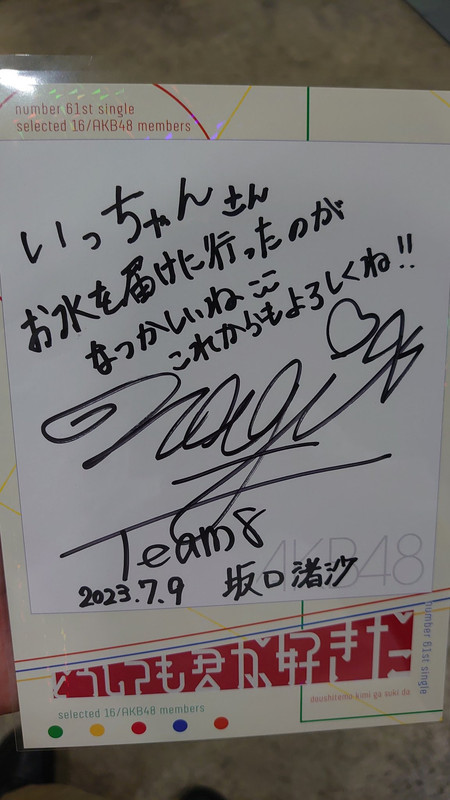 number 61st single
selected 16/AKB48 members
いっちゃんさん
お水を届けに行ったのが
なつかしいね
これからもよろしくね!!
Team8
AKB48
2023.7.9 坂口渚沙
どうしても君が好きだ
doushitemo kimi ga suki da
number 61st single
selected 16/AKB48 members